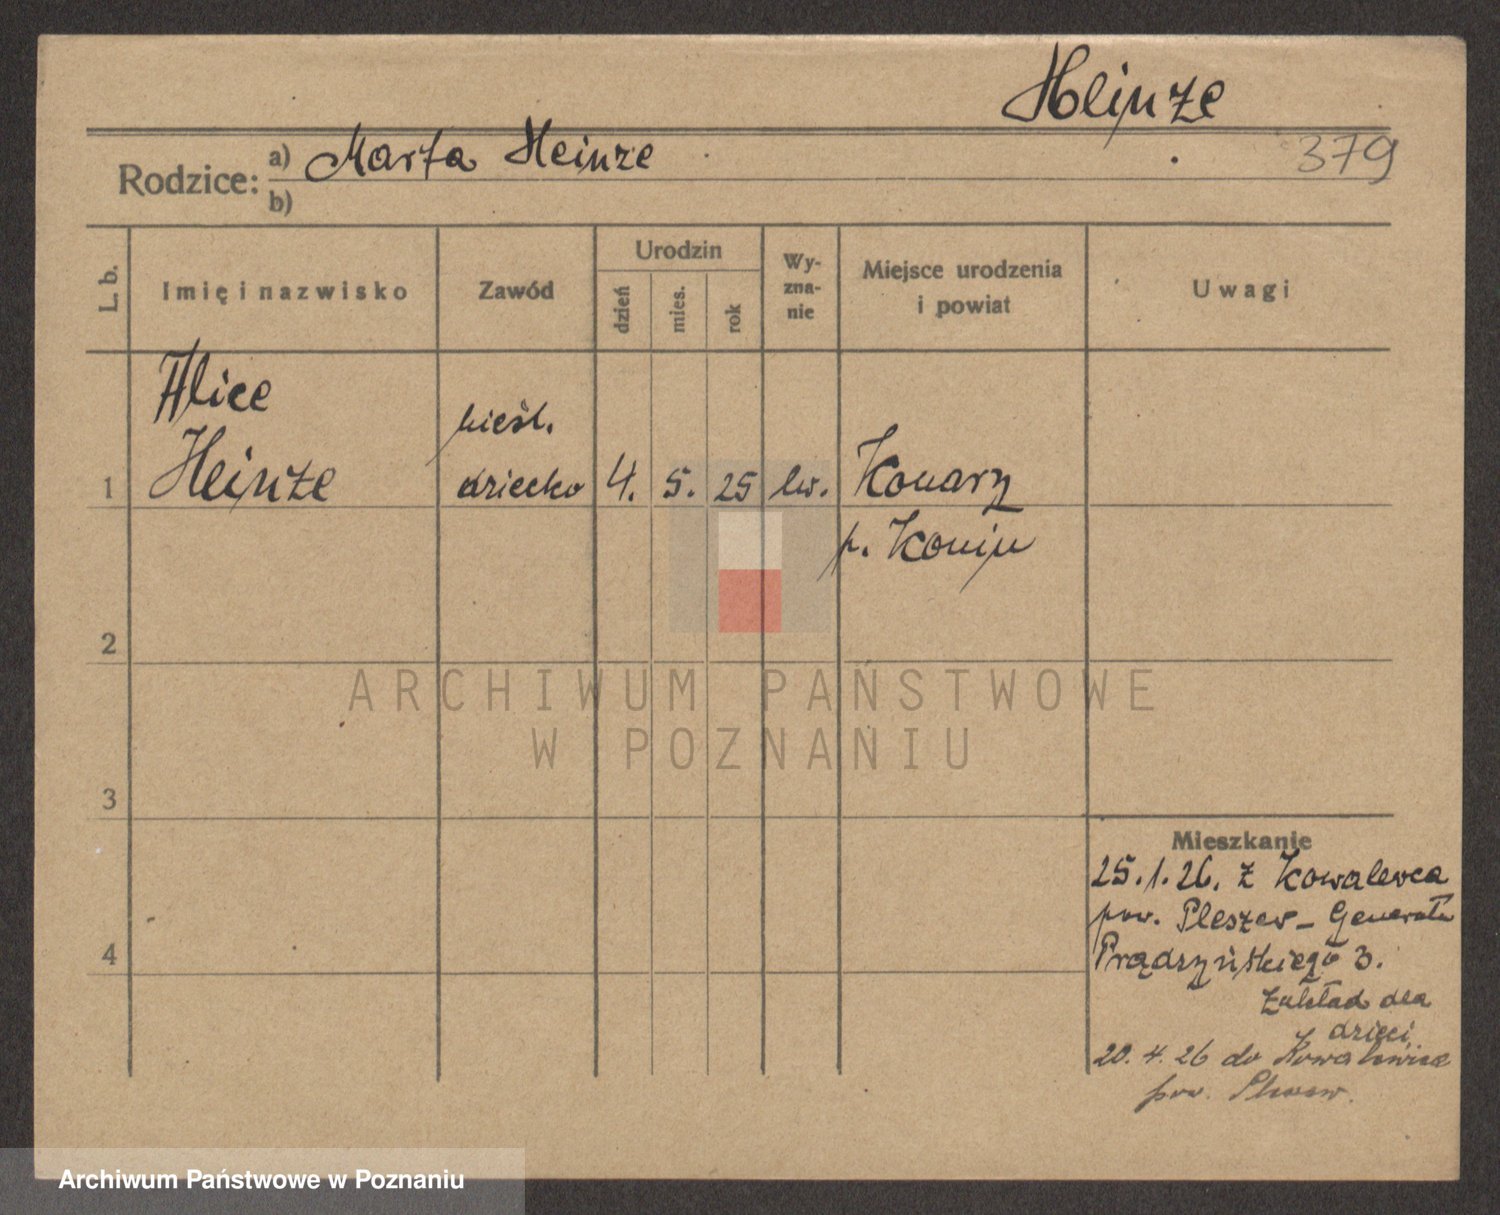 Heinze
379
Rodzice: a) Marta Heinze
b)
L. b.
Imię i nazwisko
Zawód
Urodzin
dzień
mies.
rok
Wy-
zna-
nie
Miejsce urodzenia
i powiat
Uwagi
Alice
nieśl.
1 Heinze dziecko 4. 5. 25 ew. Konary
p. Konin
2
3
4
Mieszkanie
25.1.26. z Kowalewca
pow. Pleszew - Generała
Prądzyńskiego 3.
Zakład dla
dzieci
20. 4. 26 do Kowalewica
pow. Pleszew.
ARCHIWUM PAŃSTWOWE
W POZNANIU
Archiwum Państwowe w Poznaniu